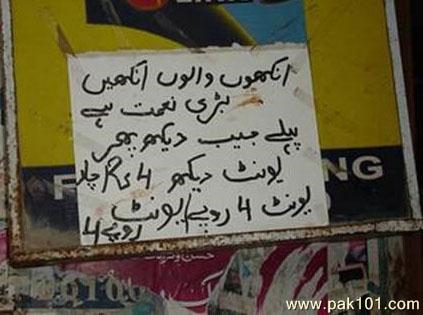 انکھوں والوں انکھیں
بڑی نعمت ہے
پہلے جیب دیکھ پھر
یونٹ دیکھ 4 Rs چار
یونٹ 4 روپے/یونٹ
روپے 4
NG
www.pak101.com